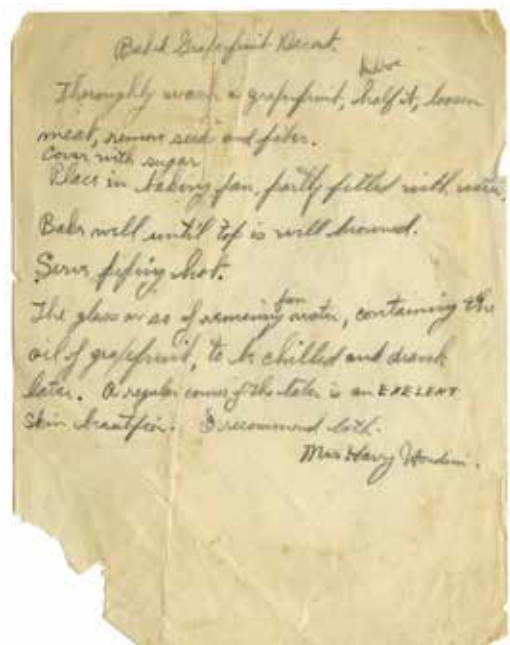 Baked Grapefruit Desert.
Thoroughly wash a grapefruit, half it, loosen
meat, remove seed and fiber.
Cover with sugar
Place in baking pan, partly filled with water.
Bake well until top is well browned.
Serve piping hot.
pan
The glass or so of remaining water, containing the
oil of grapefruit, to be chilled and drank
later. A regular of the latter is an EXELENT
skin beautifier. I recommend both.
Mrs Harry Houdini.